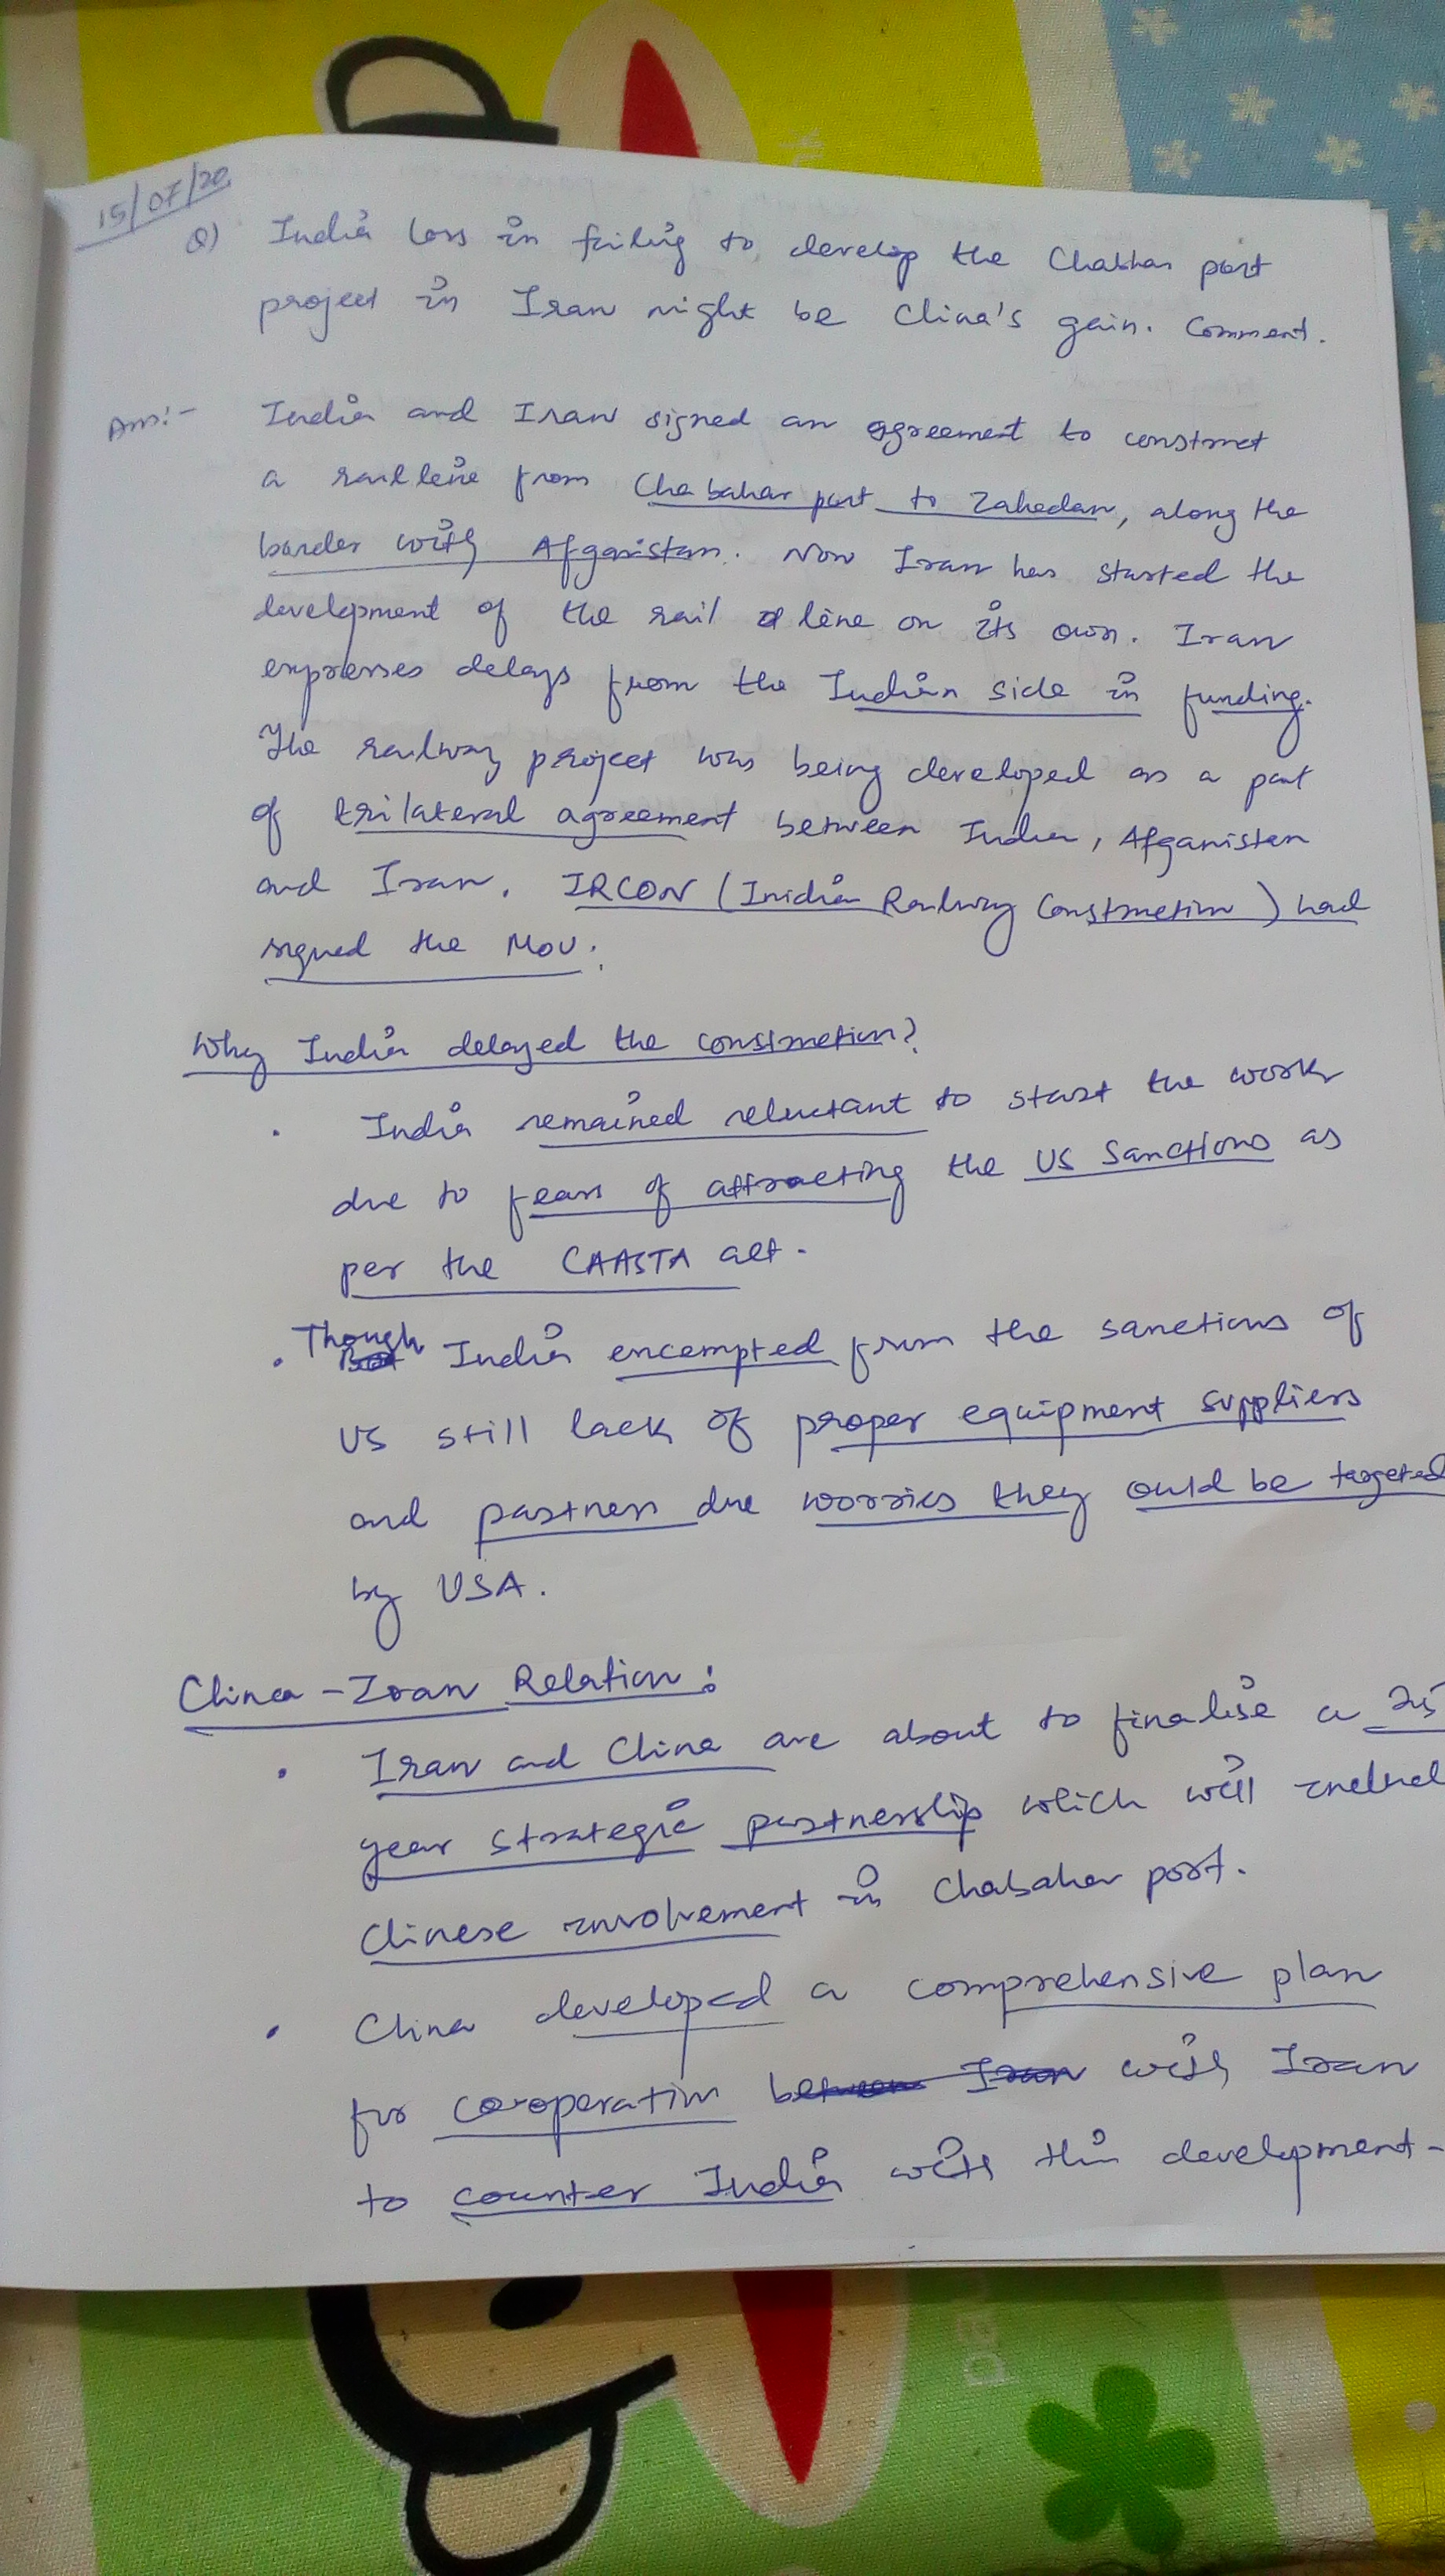 15/07/20
Q) India loss in failing to develop the Chabhar port
project in Iran might be China's gain. Comment.
Ans:- India and Iran signed an agreement to construct
a rail line from Chabahar port to Zahedan, along the
border with Afganistan. Now Iran has started the
development of the rail line on its own. Iran
expresses delays from the Indian side in funding.
The railway project was being developed as a part
of trilateral agreement between India, Afganistan
and Iran. IRCON (Inidian Railway Construction) had
signed the MoU.
Why India delayed the construction?
• India remained reluctant to start the work
due to fears of attracting the US Sanctions as
per the CAASTA act.
• Though India excempted from the sanctions of
US still lack of proper equipment suppliers
and partners due worries they ould be targeted
by USA.
China-Iran Relation:
• Iran and China are about to finalise a 25
year strategic partnership which will
Chinese involvement in Chabahar port.
• China developed a comprehensive plan
for co-operation between Iran with Iran
to counter India with this development.